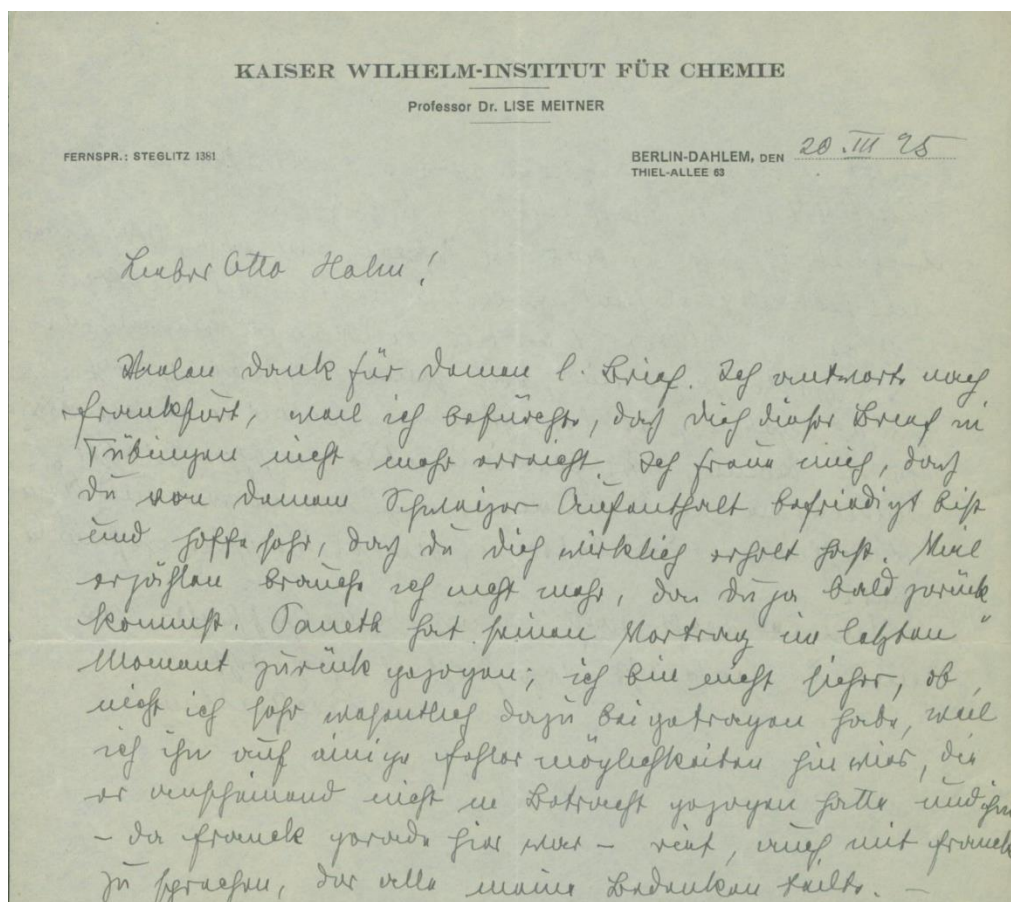 KAISER WILHELM-INSTITUT FÜR CHEMIE
Professor Dr. LISE MEITNER
FERNSPR.: STEGLITZ 1381
BERLIN-DAHLEM, DEN 20. III 25
THIEL-ALLEE 63
Lieber Otto Hahn!
Vielen Dank für Deinen l. Brief. Ich antworte nach
Frankfurt, weil ich befürchte, daß Dich dieser Brief in
Tübingen nicht mehr erreicht. Ich freue mich, daß
Du von Deinem Schweizer Aufenthalt befriedigt bist
und hoffe sehr, daß Du Dich wirklich erholt hast. Viel
erzählen brauche ich nicht mehr, da Du ja bald zurück
kommst. Paneth hat seinen Vortrag im letzten
Moment zurück gezogen; ich bin nicht sicher, ob
nicht ich sehr wesentlich dazu beigetragen habe, weil
ich ihn auf einige Fehlermöglichkeiten hinwies, die
er anscheinend nicht in Betracht gezogen hatte und ihm
– da Franck gerade hier war – riet, auch mit Franck
zu sprechen, der alle meine Bedenken teilte. –